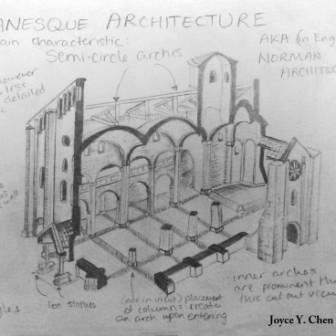 ANESQUE ARCHITECTURE
ain characteristic:
Semi-circle arches
AKA (in Eng
NORMAN
ARCHITEC
however
less
detailed
few stories
(not in view) placement
of columns create
an arch upon entering
inner arches
are prominent th
this cut out view
Joyce Y. Chen